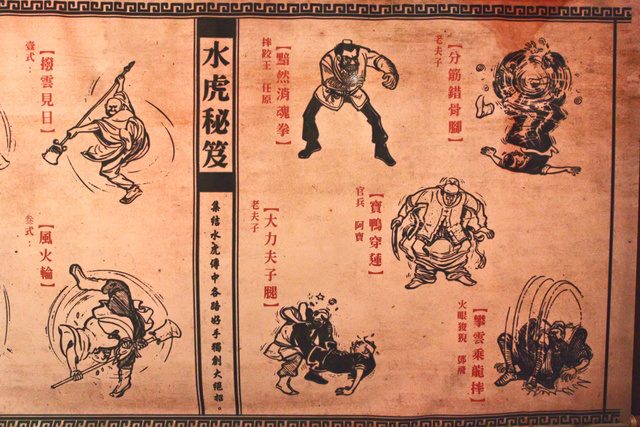 【分筋錯骨腳】
老夫子
【黯然消魂拳】
摔跤王 任原
【寶鴨穿蓮】
官兵 阿寶
【大力夫子腿】
老夫子
【攀雲乘龍摔】
火眼狻猊 鄧飛
水虎秘笈
集結水虎傳中各路好手獨創大絕招。
【撥雲見日】
壹式：
【風火輪】
叁式：